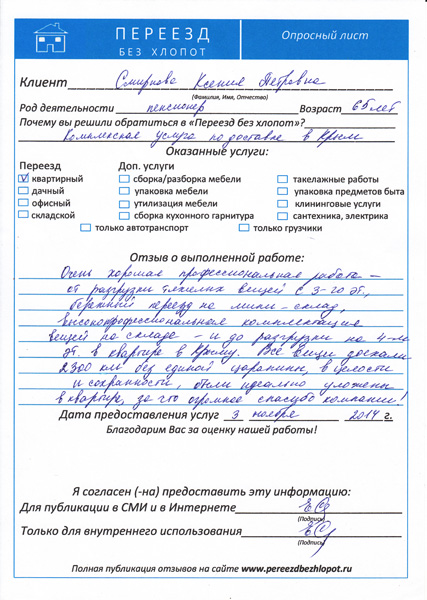 ПЕРЕЕЗД
БЕЗ ХЛОПОТ
Опросный лист
Клиент Смирнова Ксения Петровна
(Фамилия, Имя, Отчество)
Род деятельности пенсионер Возраст 65 лет
Почему вы решили обратиться в «Переезд без хлопот»?
Комплексная услуга по доставке в Крым
Оказанные услуги:
Переезд Доп. услуги
квартирный сборка/разборка мебели такелажные работы
дачный упаковка мебели упаковка предметов быта
офисный утилизация мебели клининговые услуги
складской сборка кухонного гарнитура сантехника, электрика
только автотранспорт только грузчики
Отзыв о выполненной работе:
Очень хорошая профессиональная работа –
от разгрузки тяжелых вещей с 3-го эт.,
бережный переезд на мини-склад,
высокопрофессиональная комплектация
вещей на складе – и до разгрузки на 4-м
эт. в квартире в Крыму. Все вещи доехали
2300 км без единой царапины, в целости
и сохранности, были идеально уложены
в квартире, за что огромное спасибо компании!
Дата предоставления услуг 3 ноября 2014 г.
Благодарим Вас за оценку нашей работы!
Я согласен (-на) предоставить эту информацию:
Для публикации в СМИ и в Интернете
(Подпись)
Только для внутреннего использования
(Подпись)
Полная публикация отзывов на сайте www.pereezdbezhlopot.ru